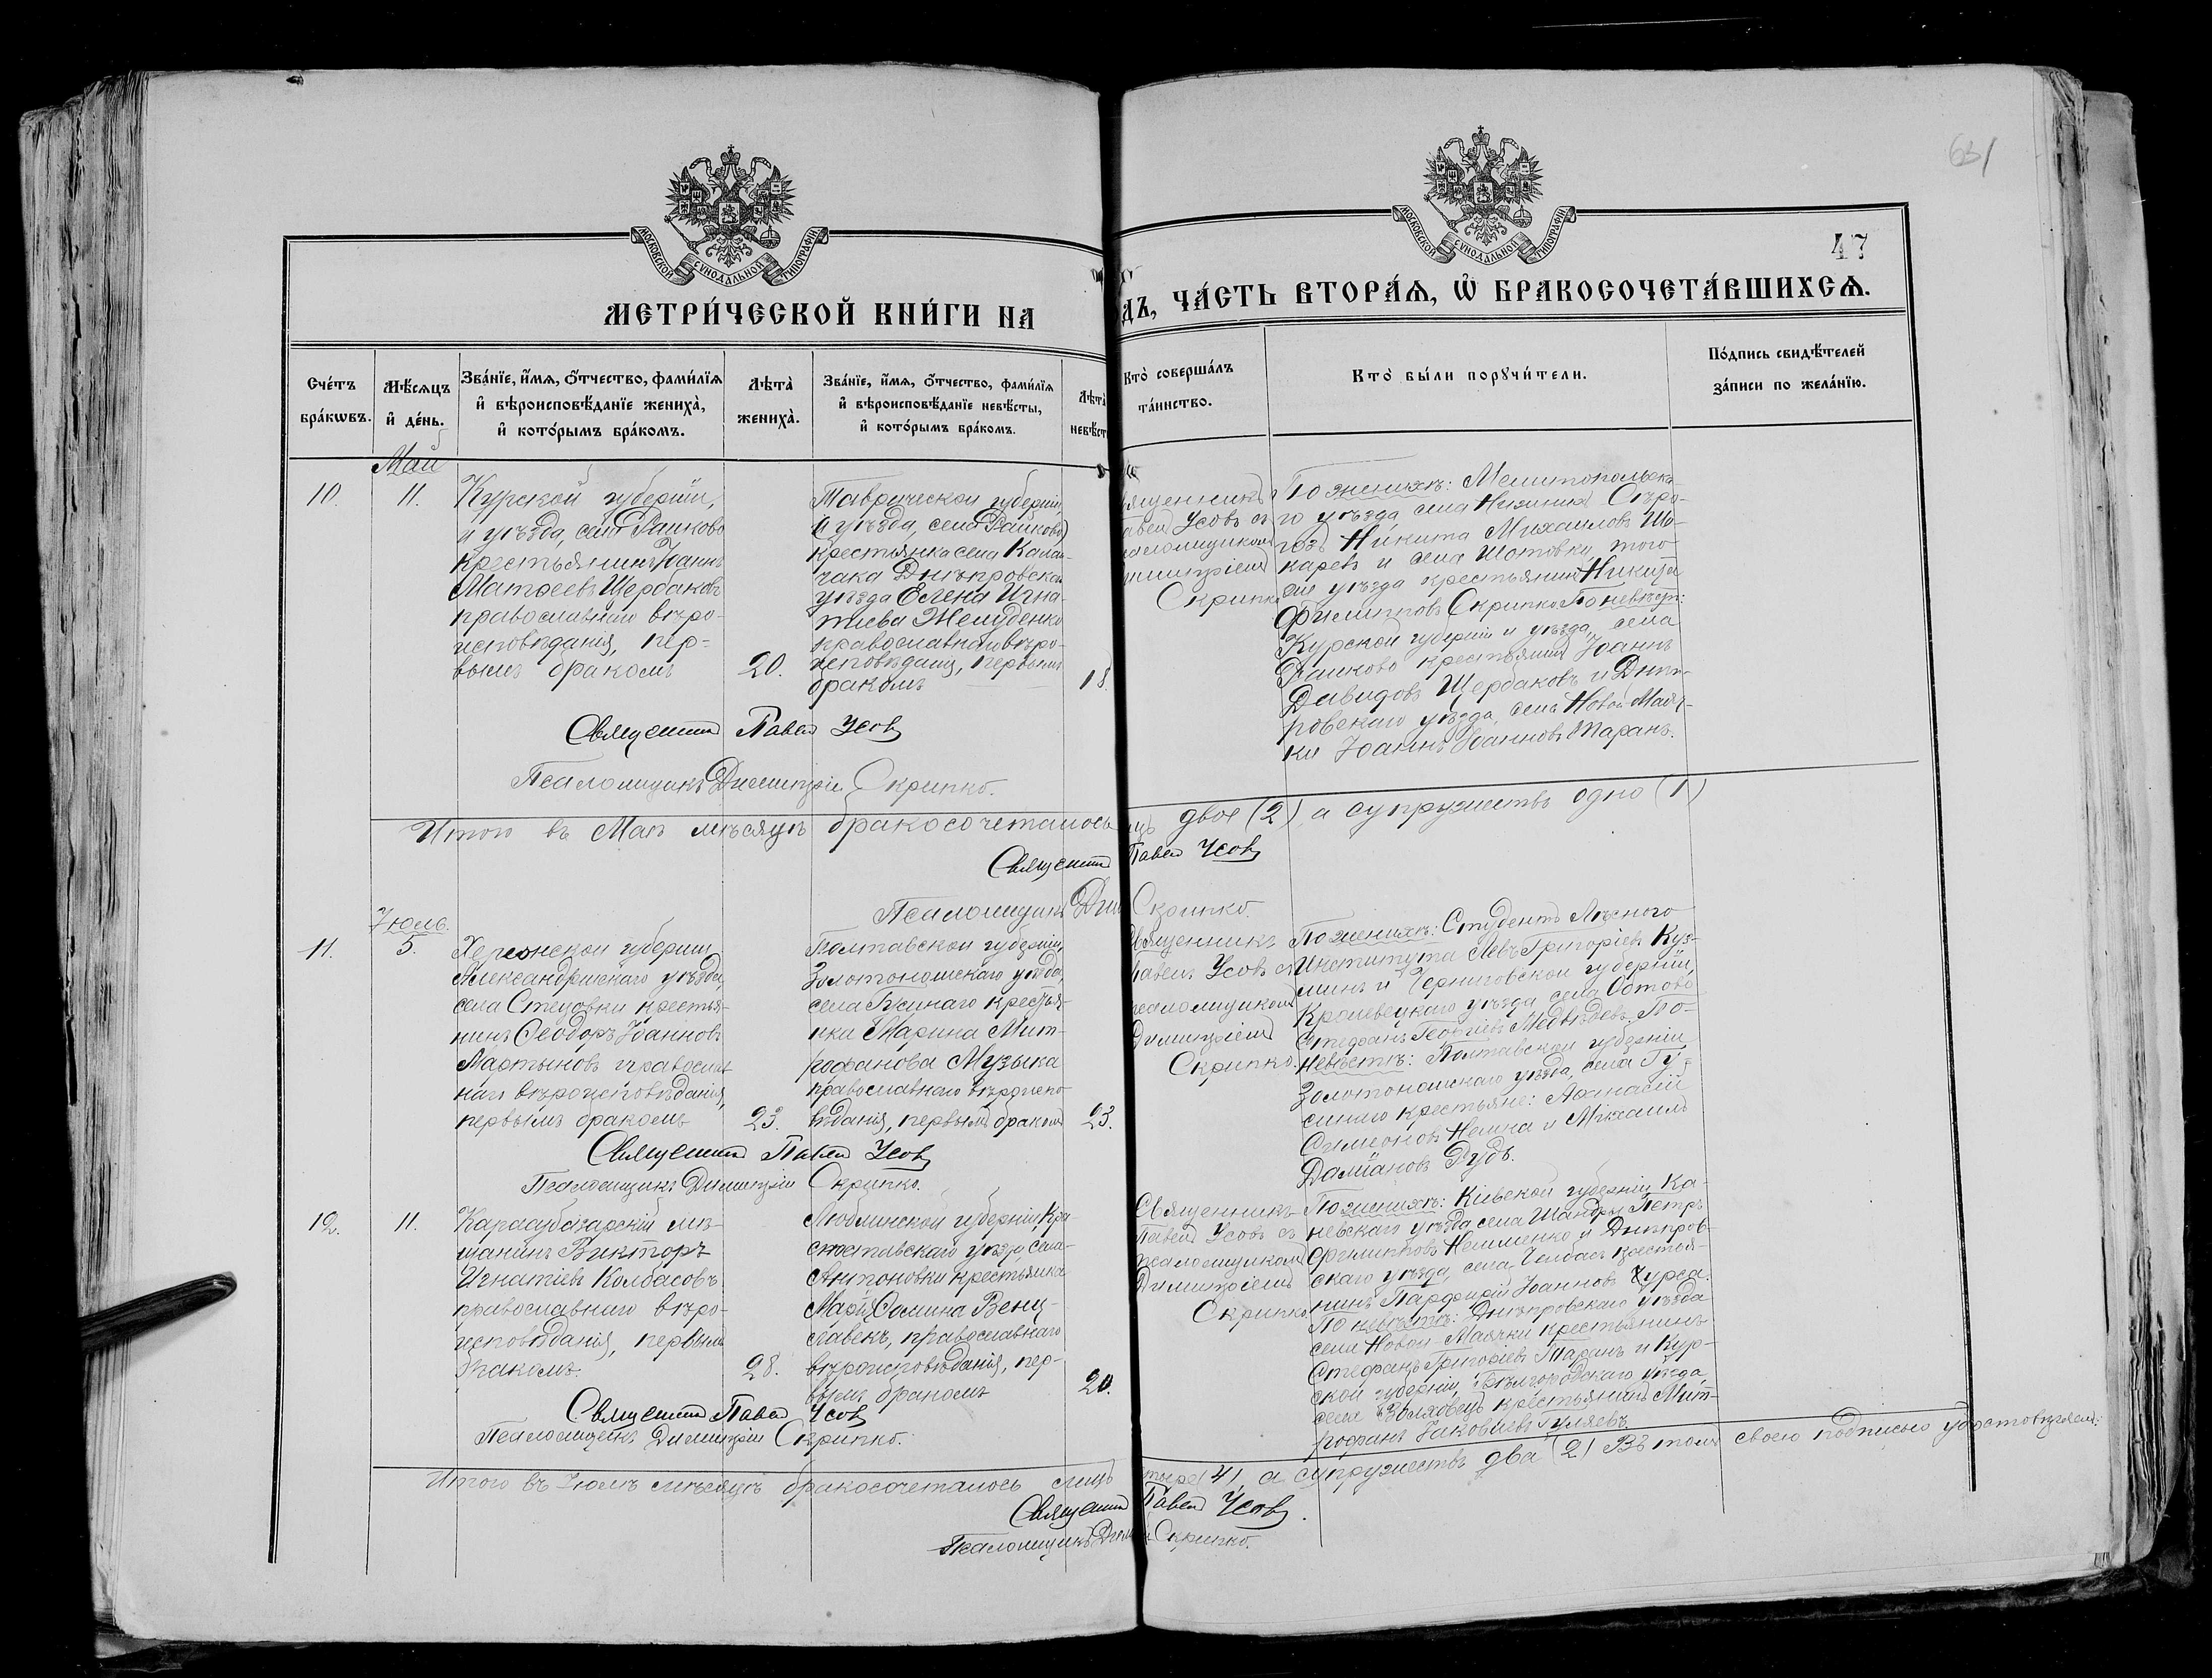 631
47
МОСКОВСКОЙ СѴНОДАЛЬНОЙ ТИПОГРАФІИ
МОСКОВСКОЙ СѴНОДАЛЬНОЙ ТИПОГРАФІИ
МЕТРИ́ЧЕСКОЙ КНИ́ГИ НА
ДЪ, ЧА́СТЬ ВТОРА́Ѧ, Ѡ БРАКОСОЧЕТА́ВШИХСѦ.
Сче́тъ бра́кѡвъ.
Мѣ́сяцъ и де́нь.
Зва́нїе, и́мѧ, ѻ́тчество, фами́лїѧ
и вѣроисповѣ́данїе жениха̀,
и кото́рымъ бра́комъ.
Лѣта̀ жениха̀.
Зва́нїе, и́мѧ, ѻ́тчество, фами́лїѧ
и вѣроисповѣ́данїе невѣ́сты,
и кото́рымъ бра́комъ.
Лѣта̀
невѣ́ст
Кто̀ соверша́лъ
та́инство.
Кто̀ бы́ли порꙋчи́тели.
По́дпись свидѣ́телей
за́писи по жела́нїю.
Май
10.
11.
Курской губерніи,
и уѣзда, села Райково
крестьянинъ Іоаннъ
Матѳеевъ Щербаковъ
православнаго вѣро-
исповѣданія, пер-
вымъ бракомъ
20.
Таврической губерніи,
и уѣзда, села Райково)
крестьянка села Калан-
чака Днѣпровскаго
уѣзда Елена Игна-
тіева Желуденко
православнаго вѣро-
исповѣданія, первымъ
бракомъ
18.
ященникъ
авелъ Усовъ съ
аломщикомъ
имитріемъ
Скрипко
По женихѣ: Мелитопольска-
го уѣзда села Нижнихъ Сѣро-
гозъ Никита Михаиловъ Шо-
каревъ и села Шотовки, того-
же уѣзда крестьянинъ Никита
Филипповъ Скрипко. По невѣстѣ:
Курской губерніи и уѣзда, села
Райково крестьянинъ Іоаннъ
Давидовъ Щербаковъ и Днѣп-
ровскаго уѣзда, села Новой-Маяч-
ки Іоаннъ Іоанновъ Таранъ.
Священникъ Павелъ Усовъ
Псаломщикъ Димитрій Скрипко.
Итого въ Маѣ мѣсяцѣ бракосочеталось
лицъ двое (2), а супружествъ одно (1)
Священникъ Павелъ Усовъ
Псаломщикъ Дим Скрипко.
Іюль.
11.
5.
Херсонской губерніи
Александрійскаго уѣзда,
села Стецовки крестья-
нинъ Ѳеодоръ Іоанновъ
Мартыновъ православ-
наго вѣроисповѣданія,
первымъ бракомъ
23.
Полтавской губерніи,
Золотоношскаго уѣзда,
села Гусинаго крестья-
нка Марина Мит-
рофанова Музыка
православнаго вѣроиспо-
вѣданія, первымъ бракомъ
23.
Священникъ
Павелъ Усовъ съ
псаломщикомъ
Димитріемъ
Скрипко.
По женихѣ: Студентъ Лѣснаго
Института Левъ Григоріевъ Куз-
минъ и Черниговской губерніи,
Кролевецкаго уѣзда села Обтово
Стефанъ Георгіевъ Медвѣдевъ. По-
невѣстѣ: Полтавской губерніи
Золотоношскаго уѣзда, села Гу-
синаго крестьяне: Аѳанасій
Симеоновъ Немна и Михаилъ
Даміановъ Рудь.
Священникъ Павелъ Усовъ
Псаломщикъ Димитрій Скрипко.
12.
11.
Карасубазарскій мѣ-
щанинъ Викторъ
Игнатіевъ Колбасовъ
православнаго вѣро-
исповѣданія, первымъ
бракомъ.
28.
Люблинской губерніи, Кра-
сноставскаго уѣзда, села
Антоновки крестьянка
Марія Ѳомина Венц-
лавекъ, православнаго
вѣроисповѣданія, пер-
вымъ бракомъ
20.
Священникъ
Павелъ Усовъ съ
псаломщикомъ
Димитріемъ
Скрипко
По женихѣ: Кіевской губерніи Ка-
невскаго уѣзда села Шандры Петръ
Филипповъ Неименко и Днѣпров-
скаго уѣзда, села Челбасъ крестья-
нинъ Парфирій Іоанновъ Курса.
По невѣстѣ: Днѣпровскаго уѣзда
села Новой-Маячки крестьянинъ
Стефанъ Григоріевъ Таранъ и Кур-
ской губерніи, Бѣлгородскаго уѣзда,
села Волховецъ крестьянинъ Мит-
рофанъ Іаковлевъ Гуляевъ.
Священникъ Павелъ Усовъ
Псаломщикъ Димитрій Скрипко.
Итого въ Іюлѣ мѣсяцѣ бракосочеталось лицъ
четыре (4), а супружествъ два (2) Въ томъ своею подписью удостовѣряемъ:
Священникъ Павелъ Усовъ.
Псаломщикъ Дим Скрипко.